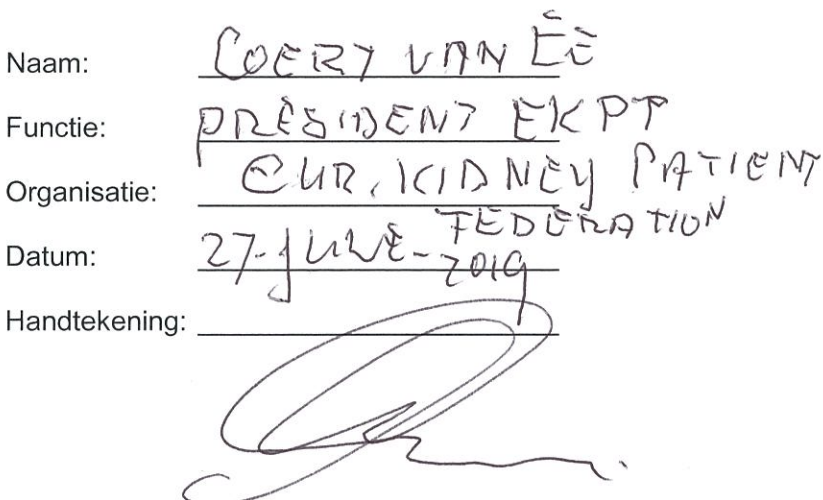 Naam: COERT VAN EE
Functie: PRESIDENT EKPF
Organisatie: EUR. KIDNEY PATIENT
FEDERATION
Datum: 27-JUNE-2019
Handtekening: